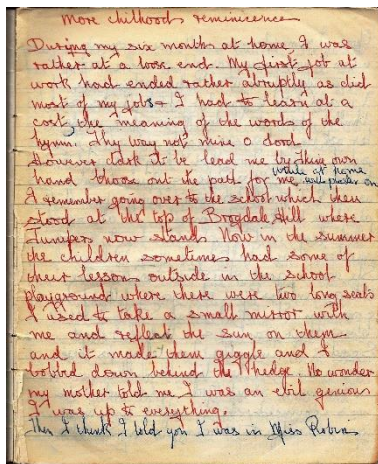 More chilhood reminicences
During my six months at home, I was
rather at a loose end. My first job at
work had ended rather abruptly as did
most of my jobs & I had to learn at a
cost, the meaning of the words of the
hymn. Thy way not mine O Lord
However dark it be lead me by thine own
hand choose out the path for me. while at home
I remember going over to the school which then
stood at the top of Brogdale Hill where
Junipers now stands Now in the summer
the children sometimes had some of
their lessons outside in the school
playground where there were two long seats
I used to take a small mirror with
me and reflect the sun on them
and it made them giggle and I
bobbed down behind the hedge. No wonder
my mother told me I was an evil genious
I was up to everything.
Then I think I told you I was in Miss Robins